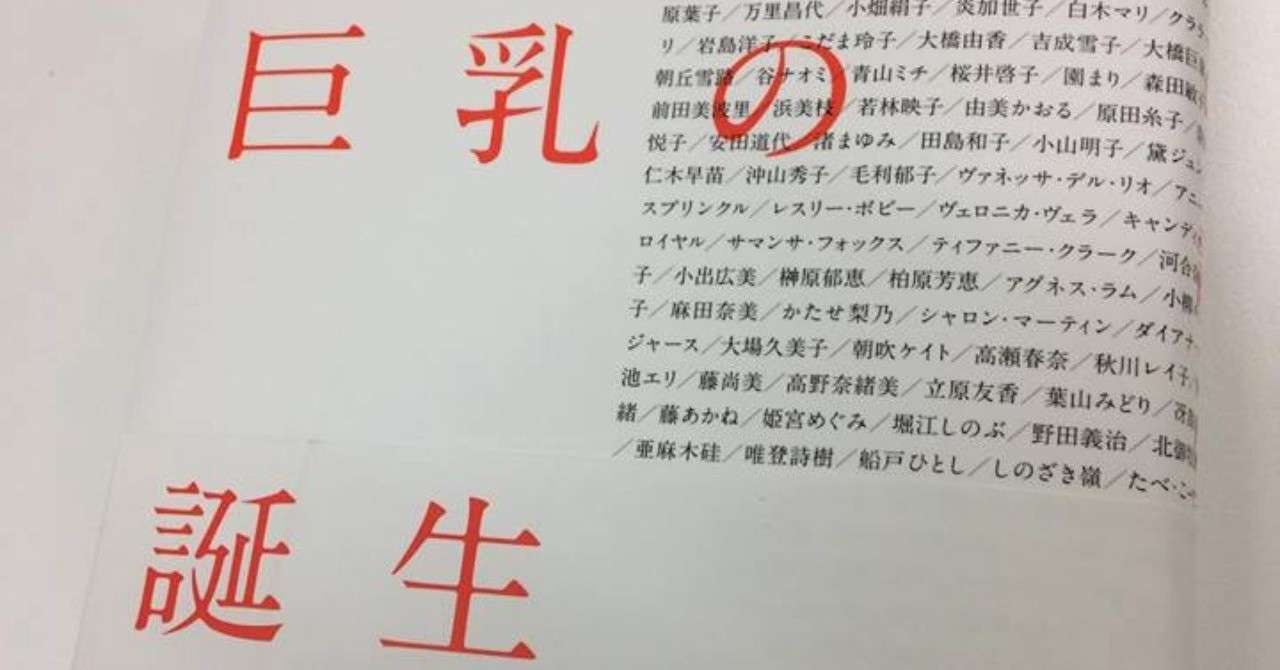 巨乳の
誕生
原葉子／万里昌代／小畑絹子／炎加世子／白木マリ／クララ
リ／岩島洋子／こだま玲子／大橋由香／吉成雪子／大橋巨
朝丘雪路／谷ナオミ／青山ミチ／桜井啓子／園まり／森田敏子
前田美波里／浜美枝／若林映子／由美かおる／原田糸子／
悦子／安田道代／渚まゆみ／田島和子／小山明子／黛ジュン
仁木早苗／沖山秀子／毛利郁子／ヴァネッサ・デル・リオ／アニー
スプリンクル／レスリー・ボビー／ヴェロニカ・ヴェラ／キャンディ
ロイヤル／サマンサ・フォックス／ティファニー・クラーク／河合
子／小出広美／榊原郁恵／柏原芳恵／アグネス・ラム／小
子／麻田奈美／かたせ梨乃／シャロン・マーティン／ダイアナ
ジャース／大場久美子／朝吹ケイト／高瀬春奈／秋川レイ子
池エリ／藤尚美／高野奈緒美／立原友香／葉山みどり／冴
緒／藤あかね／姫宮めぐみ／堀江しのぶ／野田義治／北
／亜麻木硅／唯登詩樹／船戸ひとし／しのざき嶺／たべ・こ